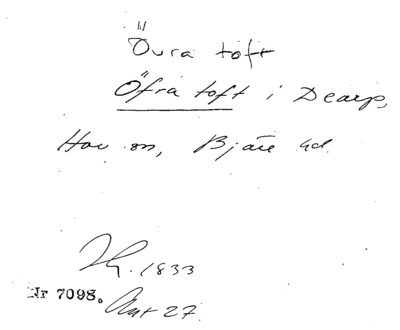 Övra toft
Öfra toft i Dearp,
Hov sn, Bjäre hd.
1833
Nr 7098. Akt 27